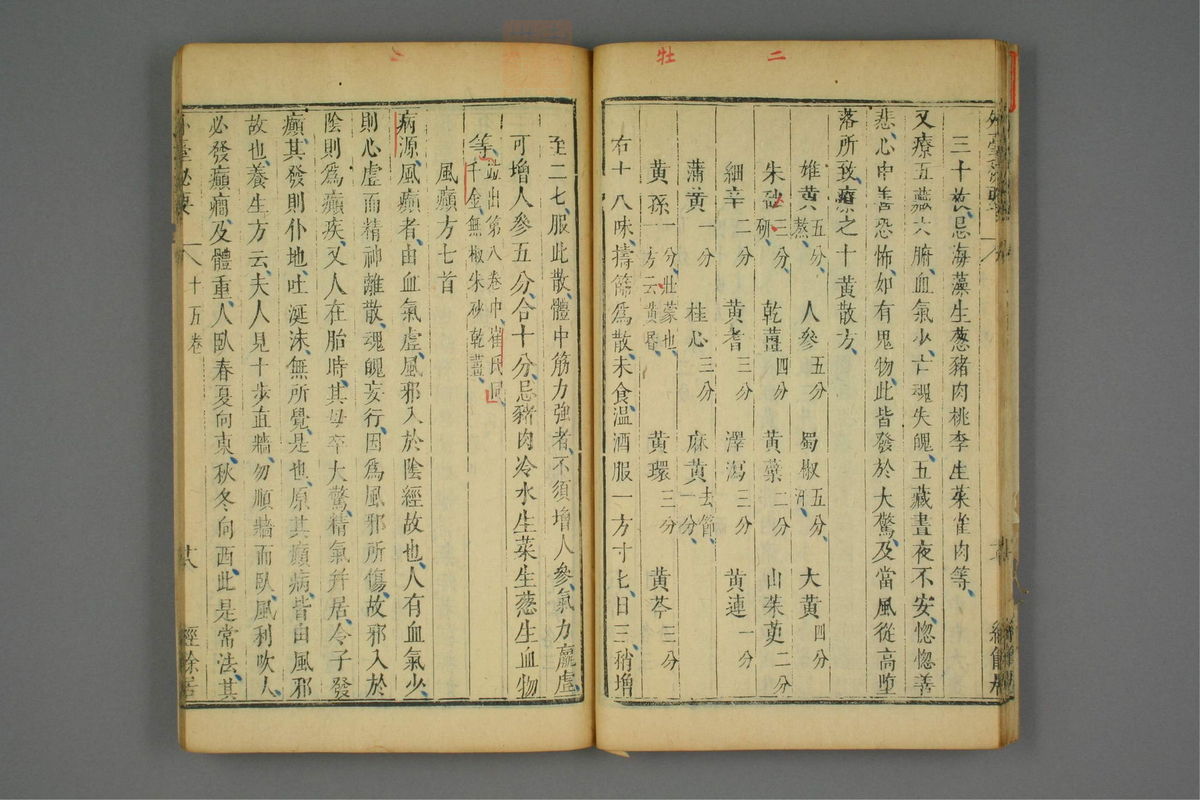 二
牡
三十枚忌海藻生葱豬肉桃李生菜雀肉等
又療五藏六腑血氣少亡魂失魄五藏晝夜不安惚惚善
悲心中善恐怖如有鬼物此皆發於大驚及當風從高墮
落所致療之十黃散方
雄黃五分熬 人參五分 蜀椒五分汗 大黃四分
朱砂三分研 乾薑四分 黃蘗二分 山茱萸二分
細辛二分 黃耆三分 澤瀉三分 黃連一分
蒲黃一分 桂心三分 麻黃去節一分
黃孫一分牡蒙也一方云黃昏 黃環三分 黃芩三分
右十八味擣篩爲散未食溫酒服一方寸匕日三稍增
至二匕服此散體中筋力強者不須增人參氣力羸虛
可增人參五分合十分忌豬肉冷水生菜生葱生血物
等並出第八卷中崔氏同千金無椒朱砂乾薑
風癲方七首
病源風癲者由血氣虛風邪入於陰經故也人有血氣少
則心虛而精神離散魂魄妄行因爲風邪所傷故邪入於
陰則爲癲疾又人在胎時其母卒大驚精氣并居令子發
癲其發則仆地吐涎沫無所覺是也原其癲病皆由風邪
故也養生方云夫人見十步直牆勿順牆而臥風利吹人
必發癲癇及體重人臥春夏向東秋冬向西此是常法其
外臺秘要 十五卷 經餘居